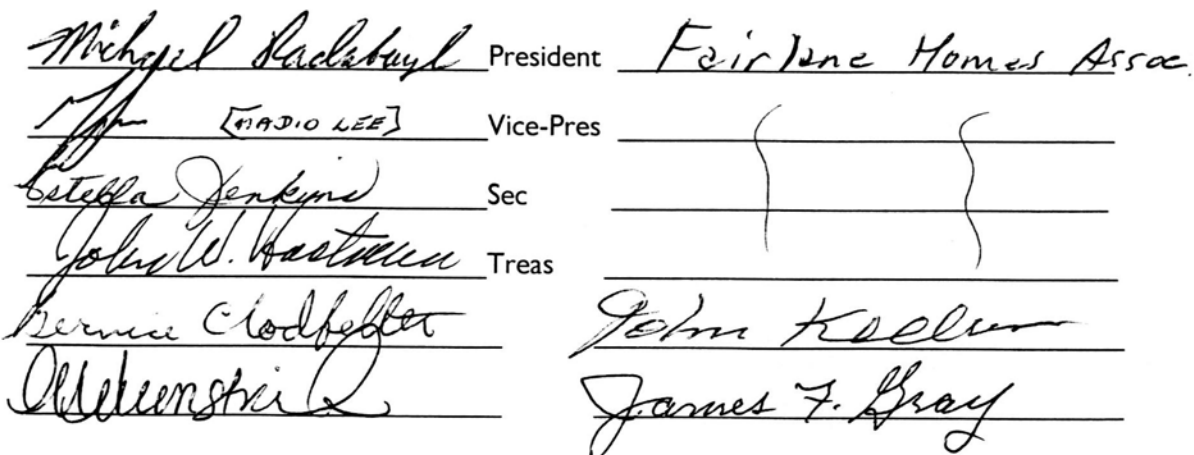 Michael President Fairlane Homes Assoc.
[MADIO LEE] Vice-Pres
Estella Jenkins Sec
John W. Treas
Bernice Clodfelter John
James F. Gray